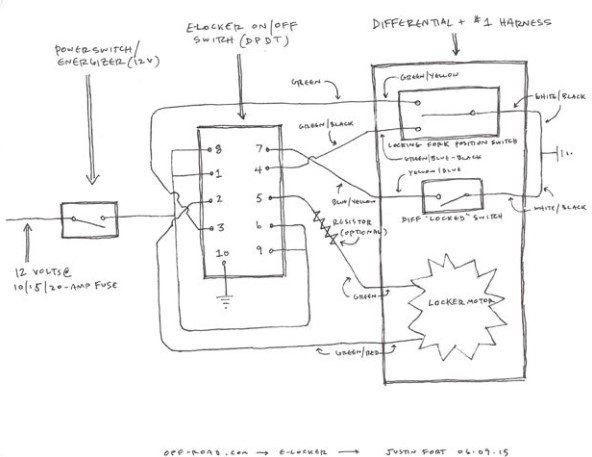 E-LOCKER ON/OFF
SWITCH (DPDT)
DIFFERENTIAL + #1 HARNESS
POWERSWITCH/
ENERGIZER (12V)
GREEN
GREEN/YELLOW
WHITE/BLACK
GREEN/BLACK
LOCKING FORK POSITION SWITCH
GREEN/BLUE-BLACK
YELLOW/BLUE
8
7
1
4
2
5
3
6
10
9
BLUE/YELLOW
RESISTOR
(OPTIONAL)
DIFF "LOCKED" SWITCH
WHITE/BLACK
12 VOLTS @
10/15/20-AMP FUSE
GREEN
LOCKER MOTOR
GREEN/RED
OFF-ROAD.COM → E-LOCKER → JUSTIN FORT 06.09.15